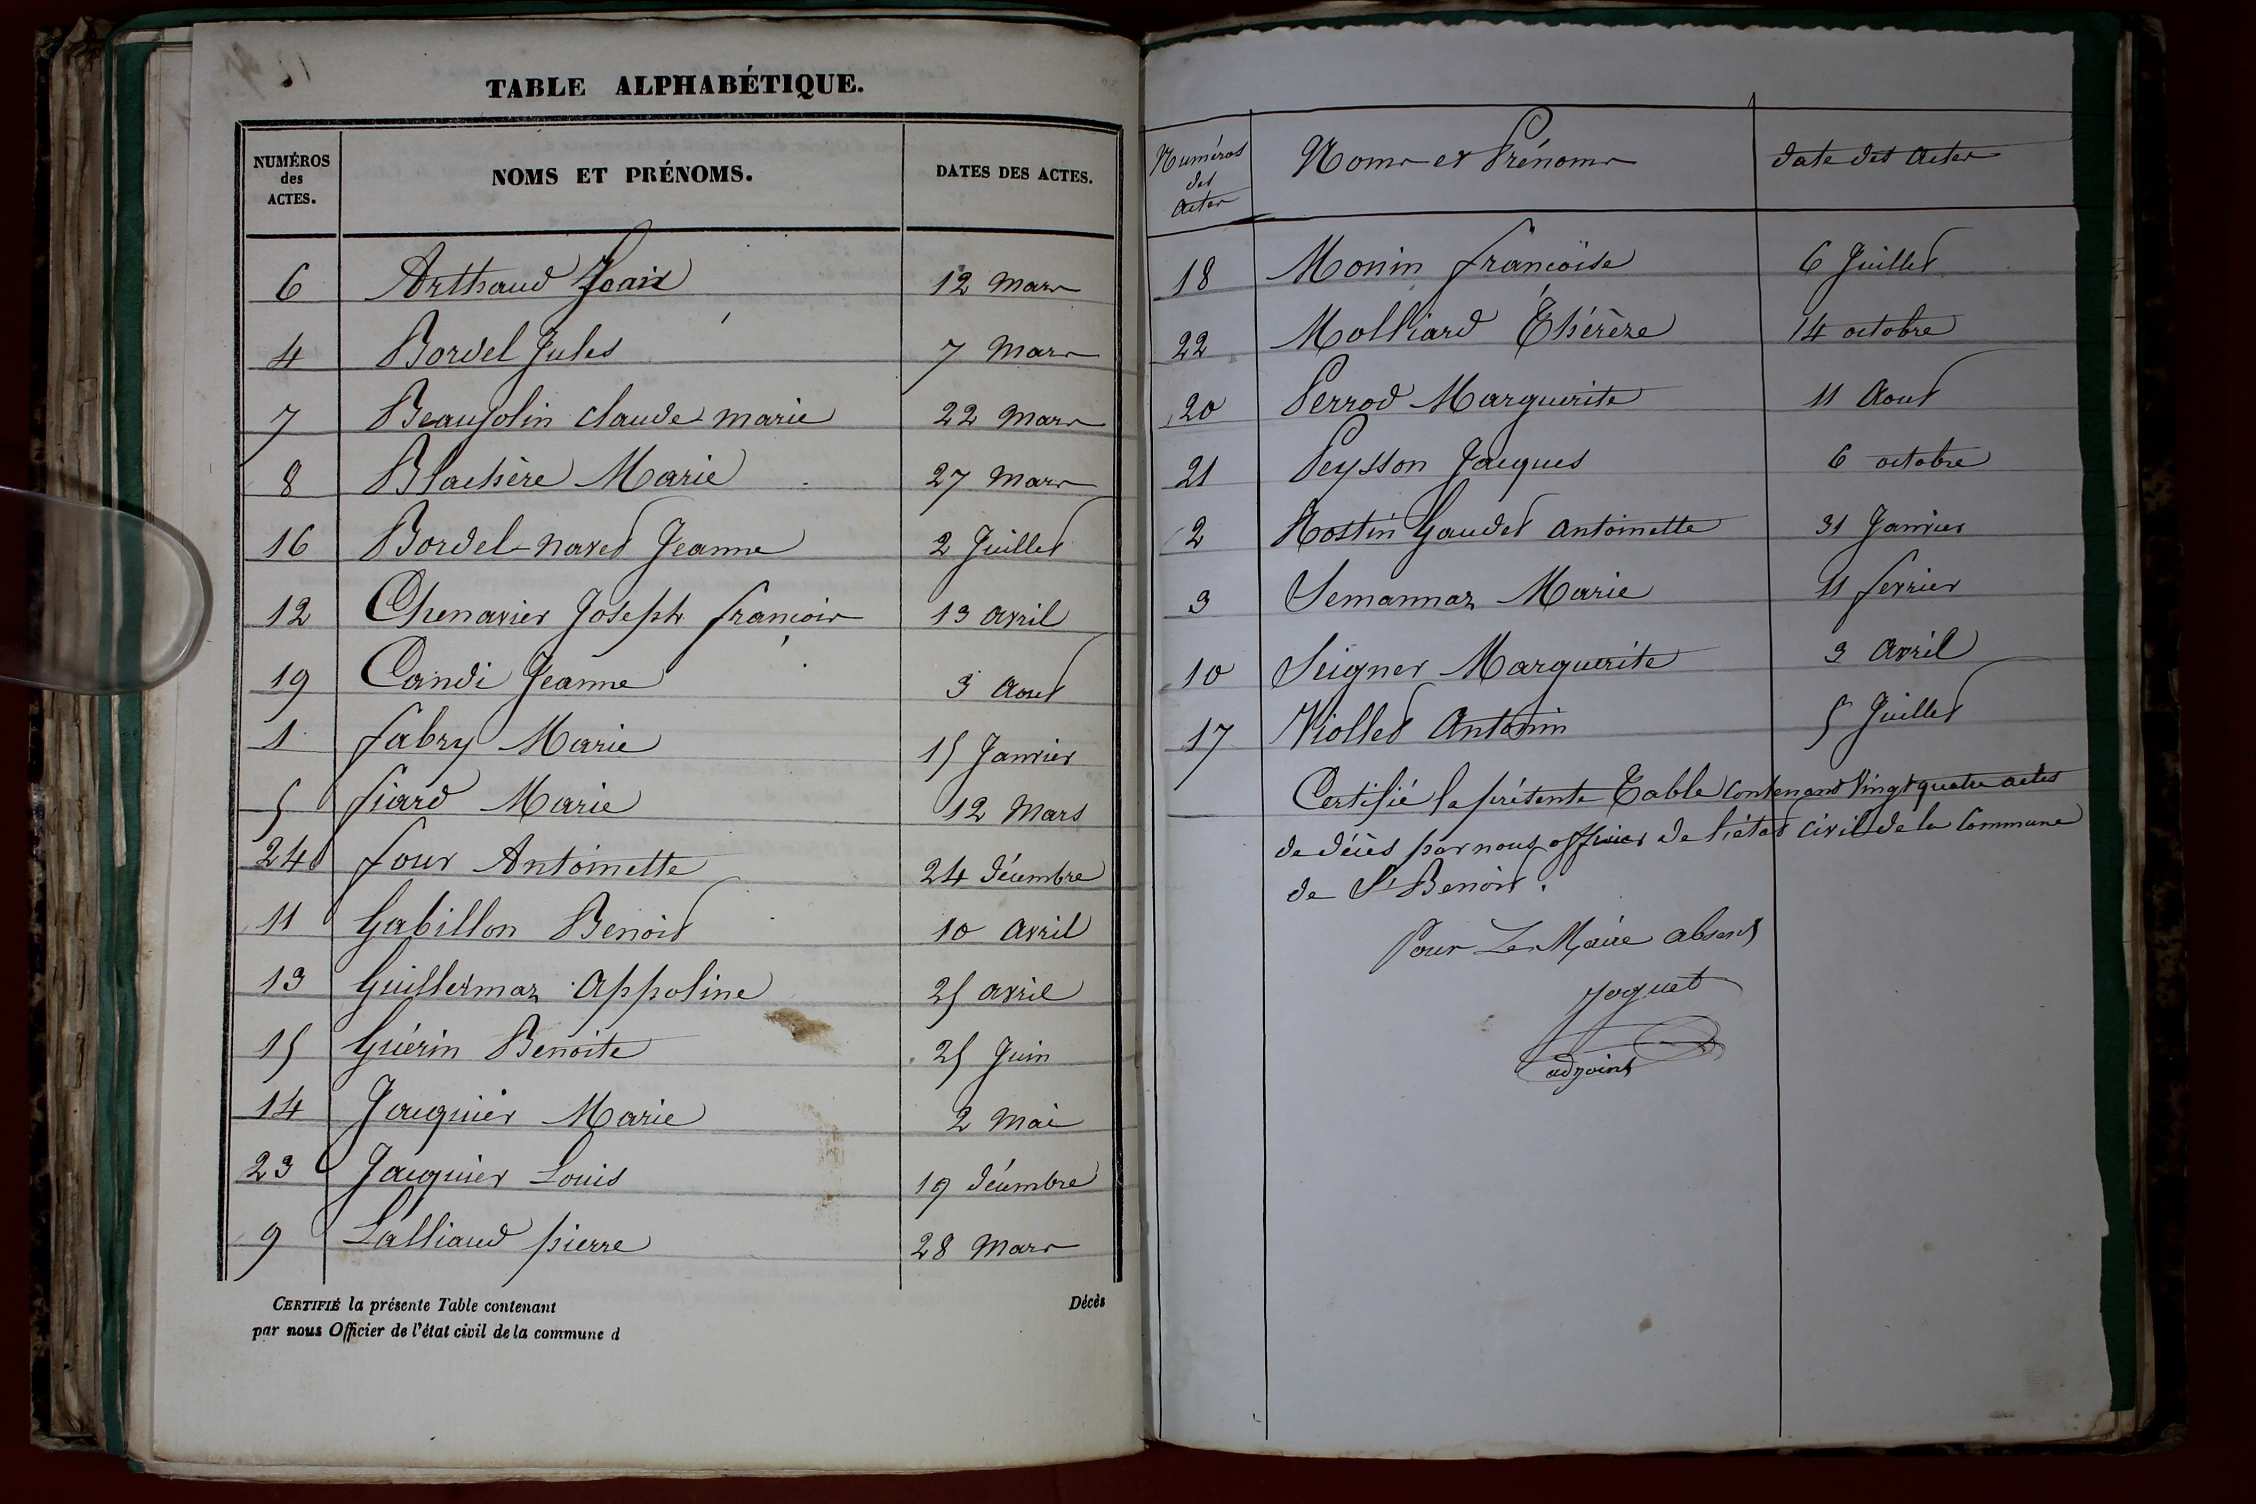 TABLE ALPHABÉTIQUE.
NUMÉROS des ACTES. NOMS ET PRÉNOMS. DATES DES ACTES.
6 Arthaud Jean 12 Mars
4 Bordel Jules 7 Mars
7 Beaujolin Claude Marie 22 Mars
8 Blachère Marie 27 Mars
16 Bordel-navet Jeanne 2 Juillet
12 Chenavier Joseph françois 13 avril
19 Candi Jeanne 3 Aout
1 fabry Marie 15 Janvier
5 fiard Marie 12 Mars
24 four Antoinette 24 décembre
11 Gabillon Benoit 10 avril
13 Guillermaz Appoline 25 avril
15 Guérin Benoite 25 Juin
14 Jacquier Marie 2 Mai
23 Jacquier Louis 19 décembre
9 Lalliaud pierre 28 Mars
CERTIFIÉ la présente Table contenant Décès
par nous Officier de l'état civil de la commune d
Numéros des Actes Noms et Prénoms date des Actes
18 Monin françoise 6 Juillet
22 Molliard Thérèze 14 octobre
20 Perrod Marguerite 11 Aout
21 Peysson Jacques 6 octobre
2 Rostin Gaudet Antoinette 31 Janvier
3 Semannaz Marie 11 fevrier
10 Seigner Marguerite 3 Avril
17 Viollet Antonin 5 Juillet
Certifié la présente Table contenant vingt quatre actes
de décès par nous officier de l'état civil de la Commune
de St Benoit.
Pour Le Maire absent
Joguet
adjoint